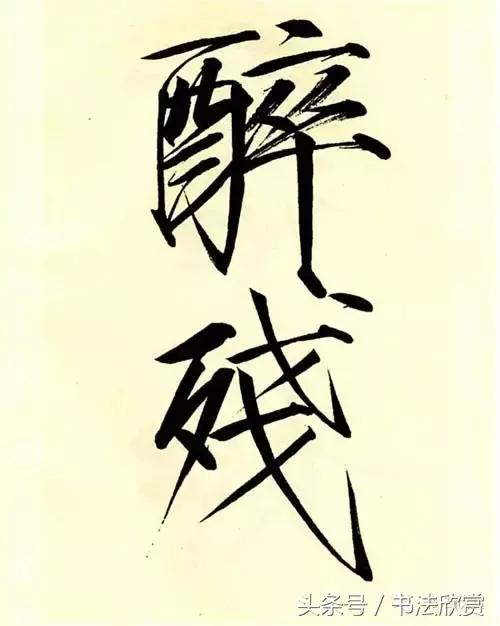 醉殘
头条号 / 书法欣赏